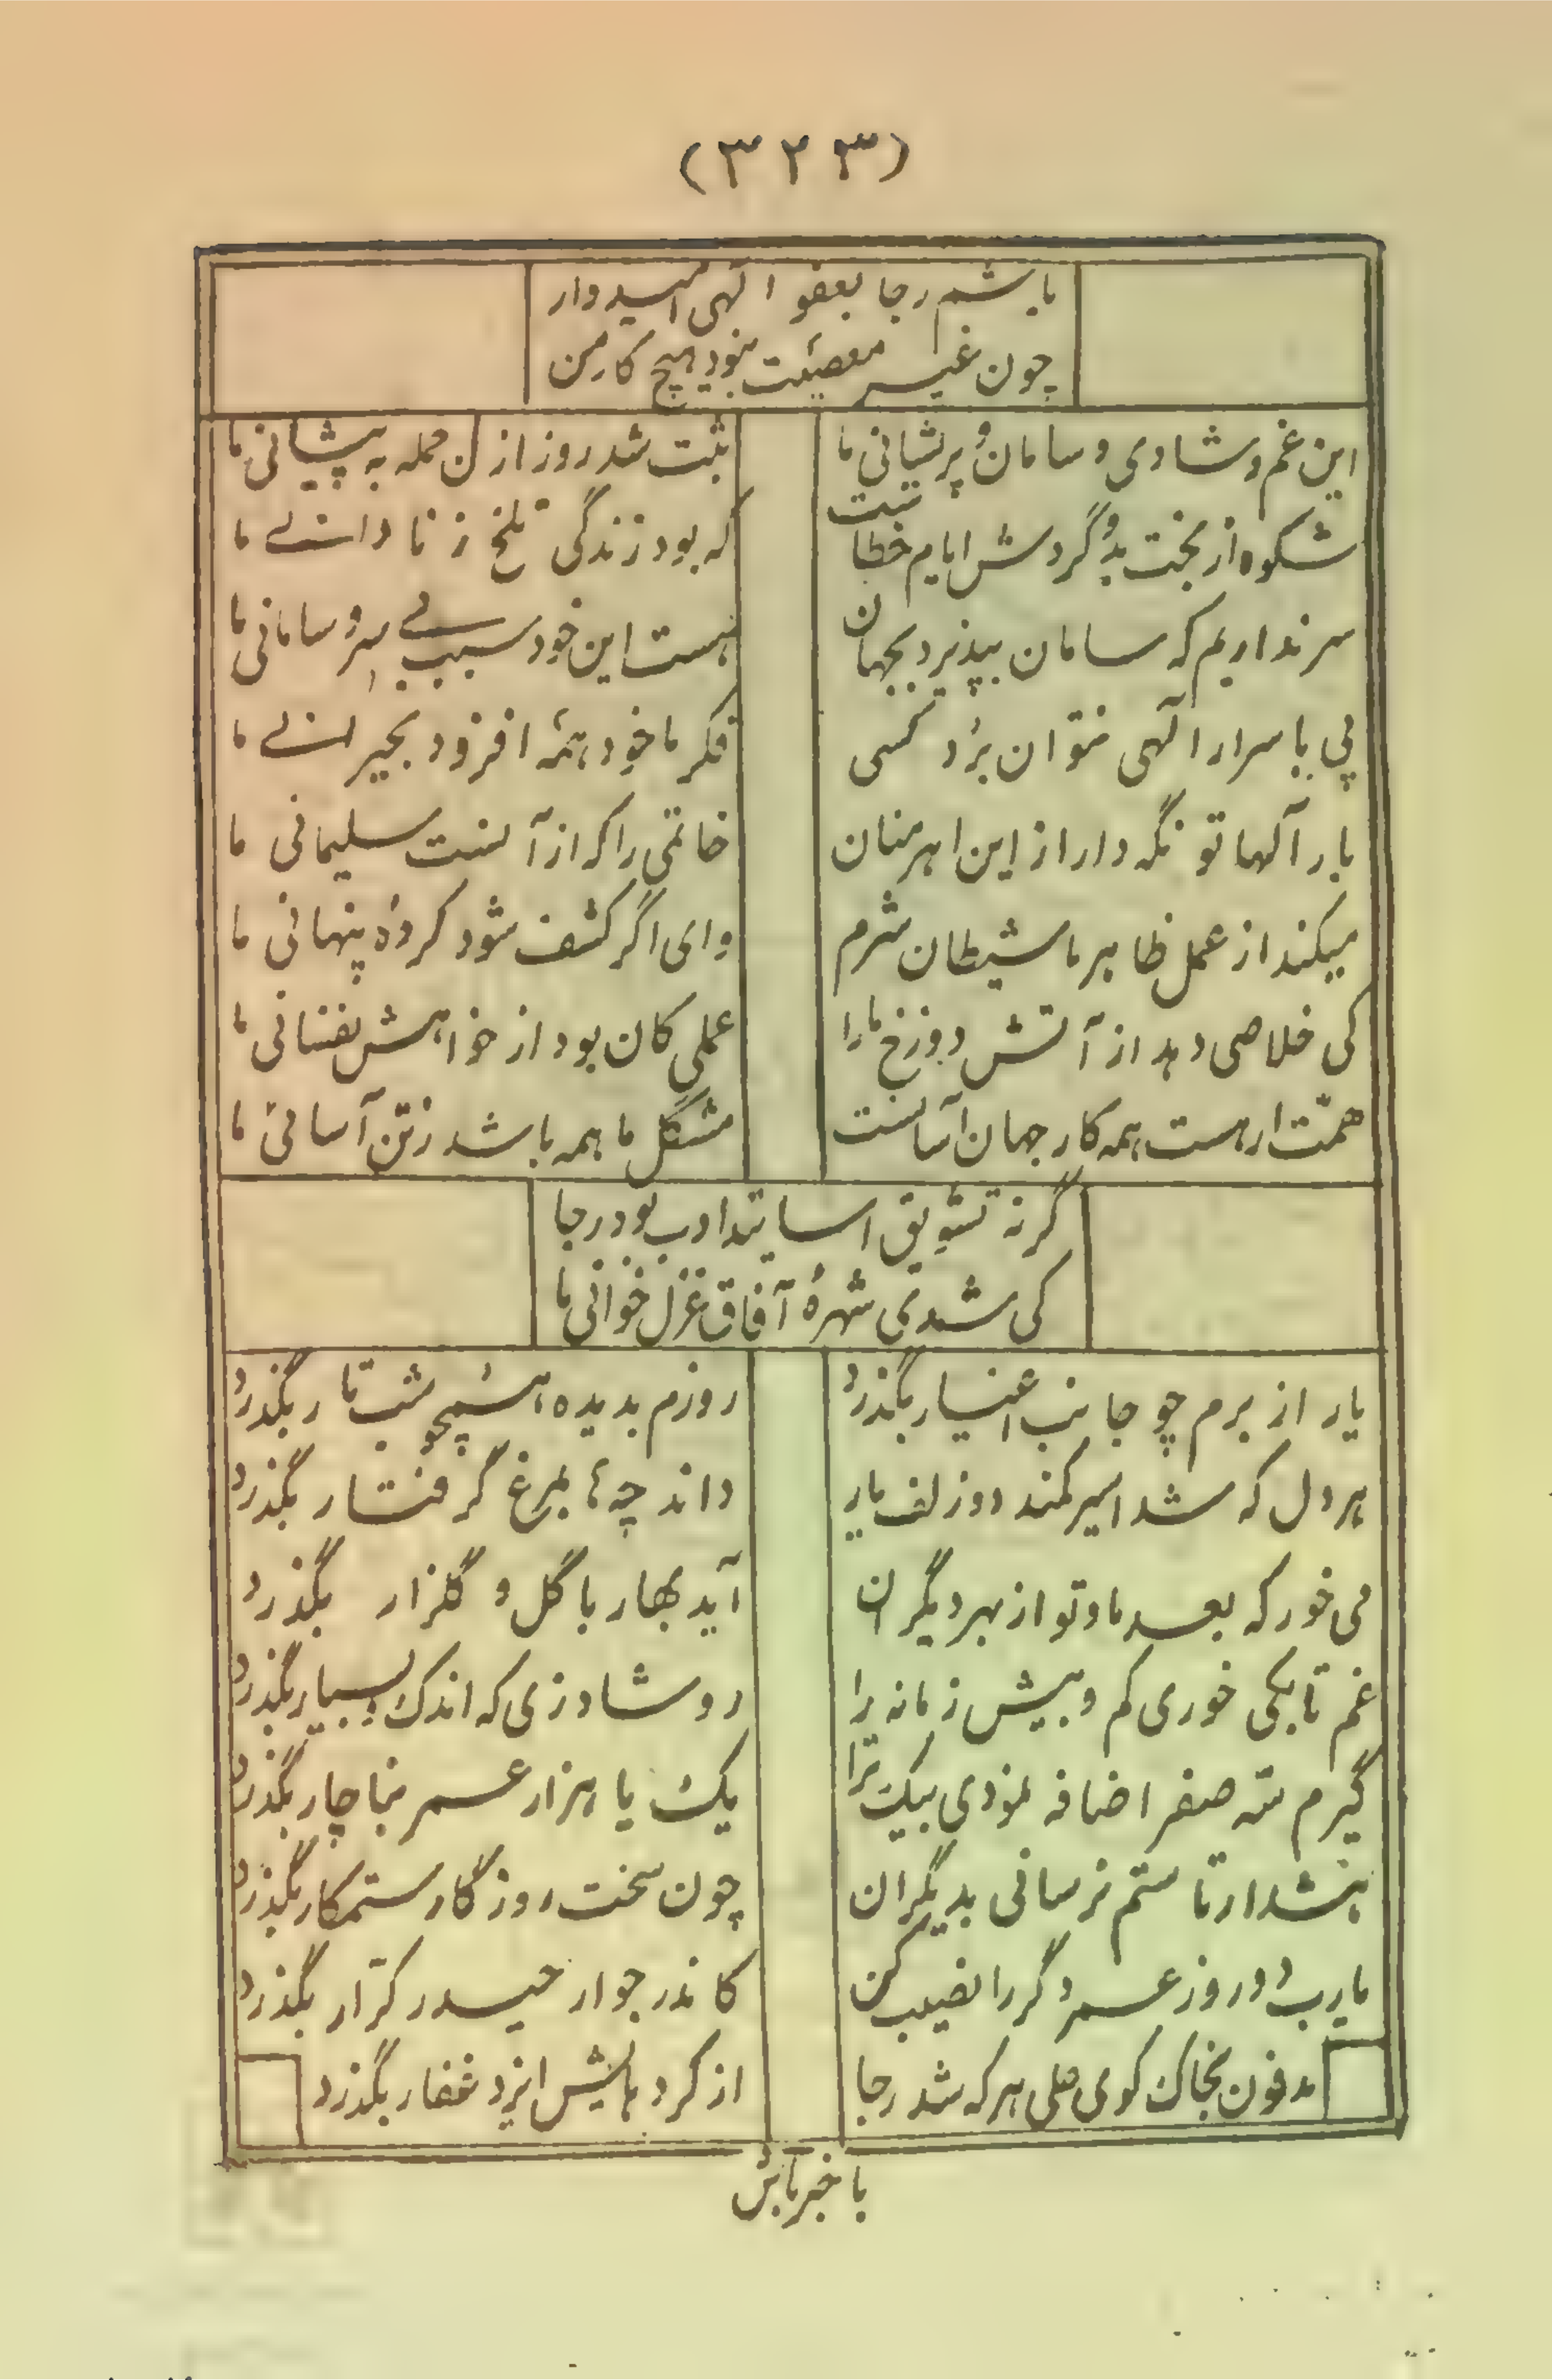 (۳۲۳)
باشم رجا بعفو الهی امیدوار
چون غیر معصیت نبود هیچ کار من
این غم و شادی و سامان و پریشانی ما
ثبت شد روز ازل جمله به پیشانی ما
شکوه از بخت بد و گردش ایام خطاست
که بود زندگی تلخ ز نادانی ما
سر نداریم که سامان بپذیرد بجهان
هست این خود سبب بی سر و سامانی ما
پی باسرار الهی نتوان برد کسی
فکر ما خود همه افزود بحیرانی ما
بار آلها تو نگه دار از این اهرمنان
خاتمی را که از آنست سلیمانی ما
میکند از عمل ظاهر ما شیطان شرم
وای اگر کشف شود کردهٔ پنهانی ما
کی خلاصی دهد از آتش دوزخ ما را
عملی کان بود از خواهش نفسانی ما
همّت ار هست همه کار جهان آسانست
مشکل ما همه باشد ز تن آسانی ما
گر نه تشویق اساتید ادب بود رجا
کی شدی شهرهٔ آفاق غزل خوانی ما
یار از برم چو جانب اغیار بگذرد
روزم بدیده همچو شب تار بگذرد
هر دل که شد اسیر کمند دو زلف یار
داند چها بمرغ گرفتار بگذرد
می خور که بعد ما و تو از بهر دیگران
آید بهار با گل و گلزار بگذرد
غم تا بکی خوری کم و بیش زمانه را
رو شاد زی که اندک و بسیار بگذرد
گیرم سه صفر اضافه نمودی بیک ترا
یک یا هزار عمر بناچار بگذرد
هشدار تا ستم نرسانی بدیگران
چون سخت روزگار ستمکار بگذرد
یارب دو روز عمر دگر را نصیب کن
کاندر جوار حیدر کرّار بگذرد
مدفون بخاک کوی علی هر که شد رجا
از کرد هایش ایزد غفار بگذرد
با خبر باش